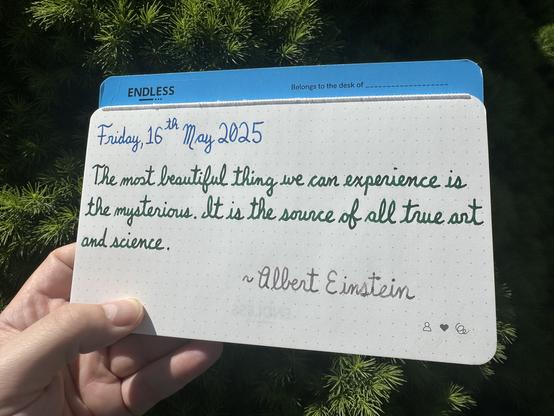 ENDLESS
Belongs to the desk of
Friday, 16th May 2025
The most beautiful thing we can experience is
the mysterious. It is the source of all true art
and science.
~Albert Einstein